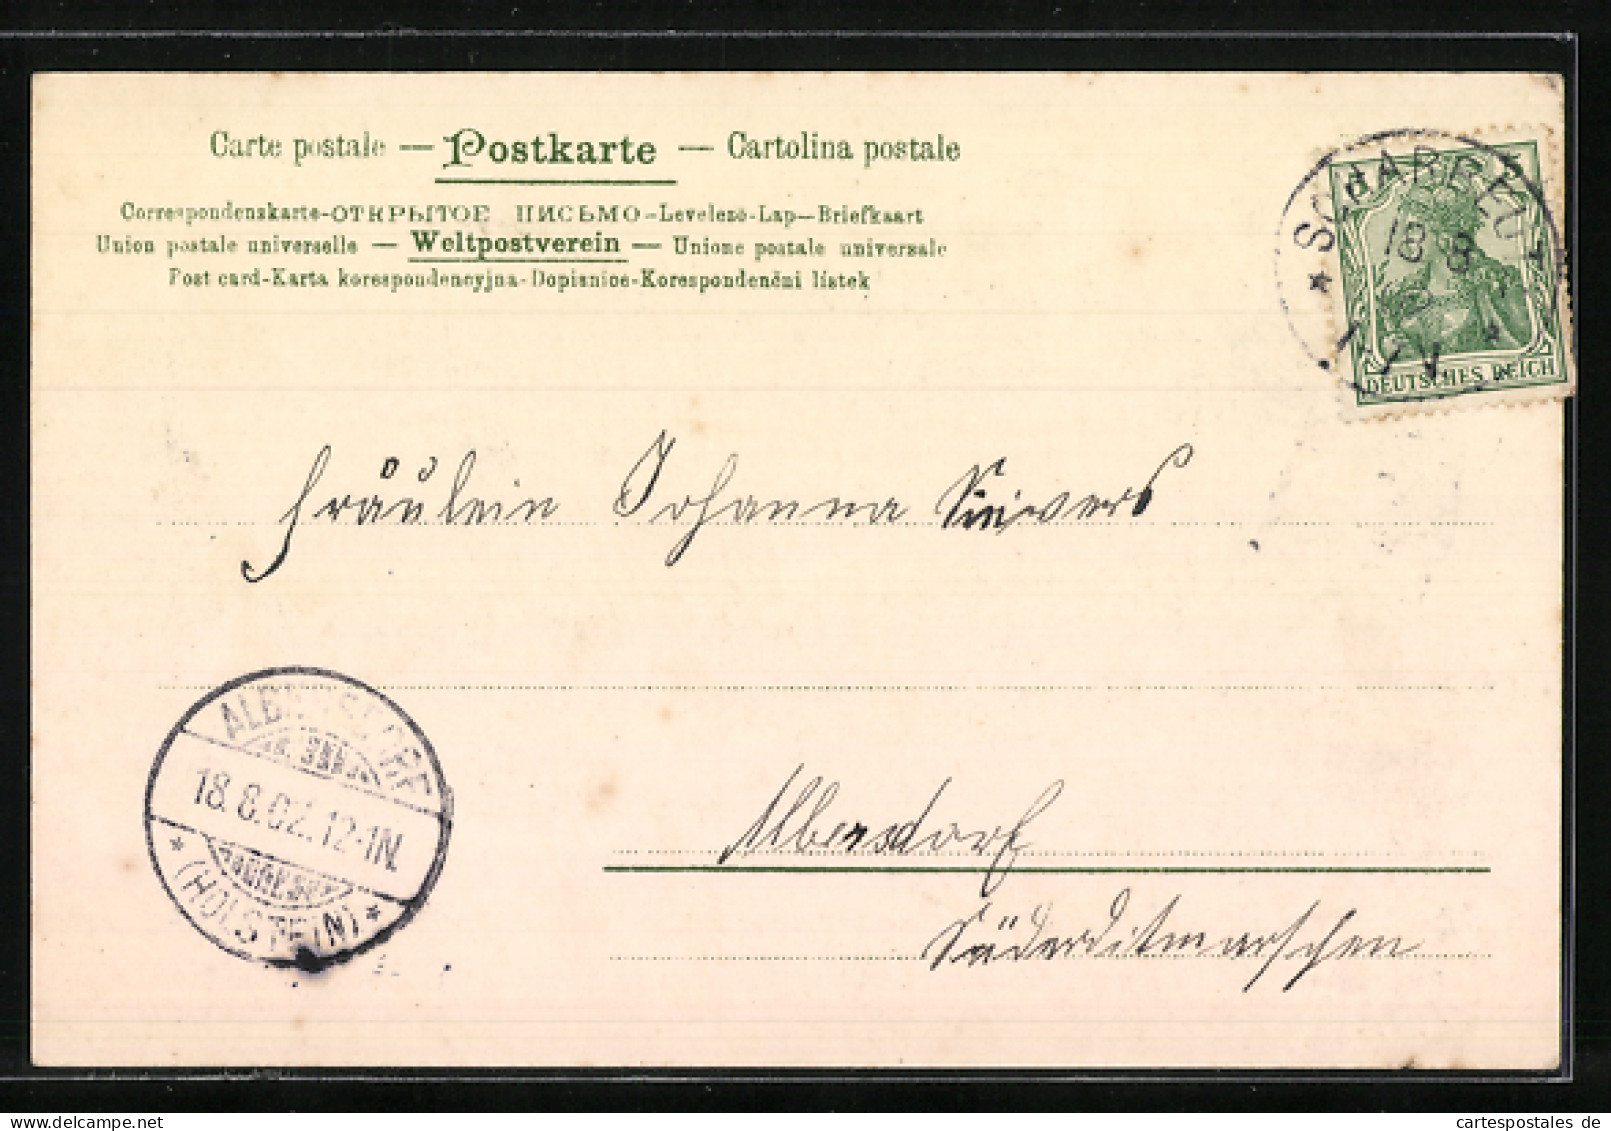 Carte postale — Postkarte — Cartolina postale
Correspondenskarte-ОТКРЫТОЕ ПИСЬМО-Levelező-Lap-Briefkaart
Union postale universelle — Weltpostverein — Unione postale universale
Post card-Karta korespondencyjna-Dopisnice-Korespondenční lístek
* SCHARBEUTZ *
18 8
DEUTSCHES REICH
Fräulein Johanna Sievers
ALBERSDORF
18.8.02.12-1N.
* (HOLSTEIN) *
Albersdorf
Süderditmarschen
cartespostales de